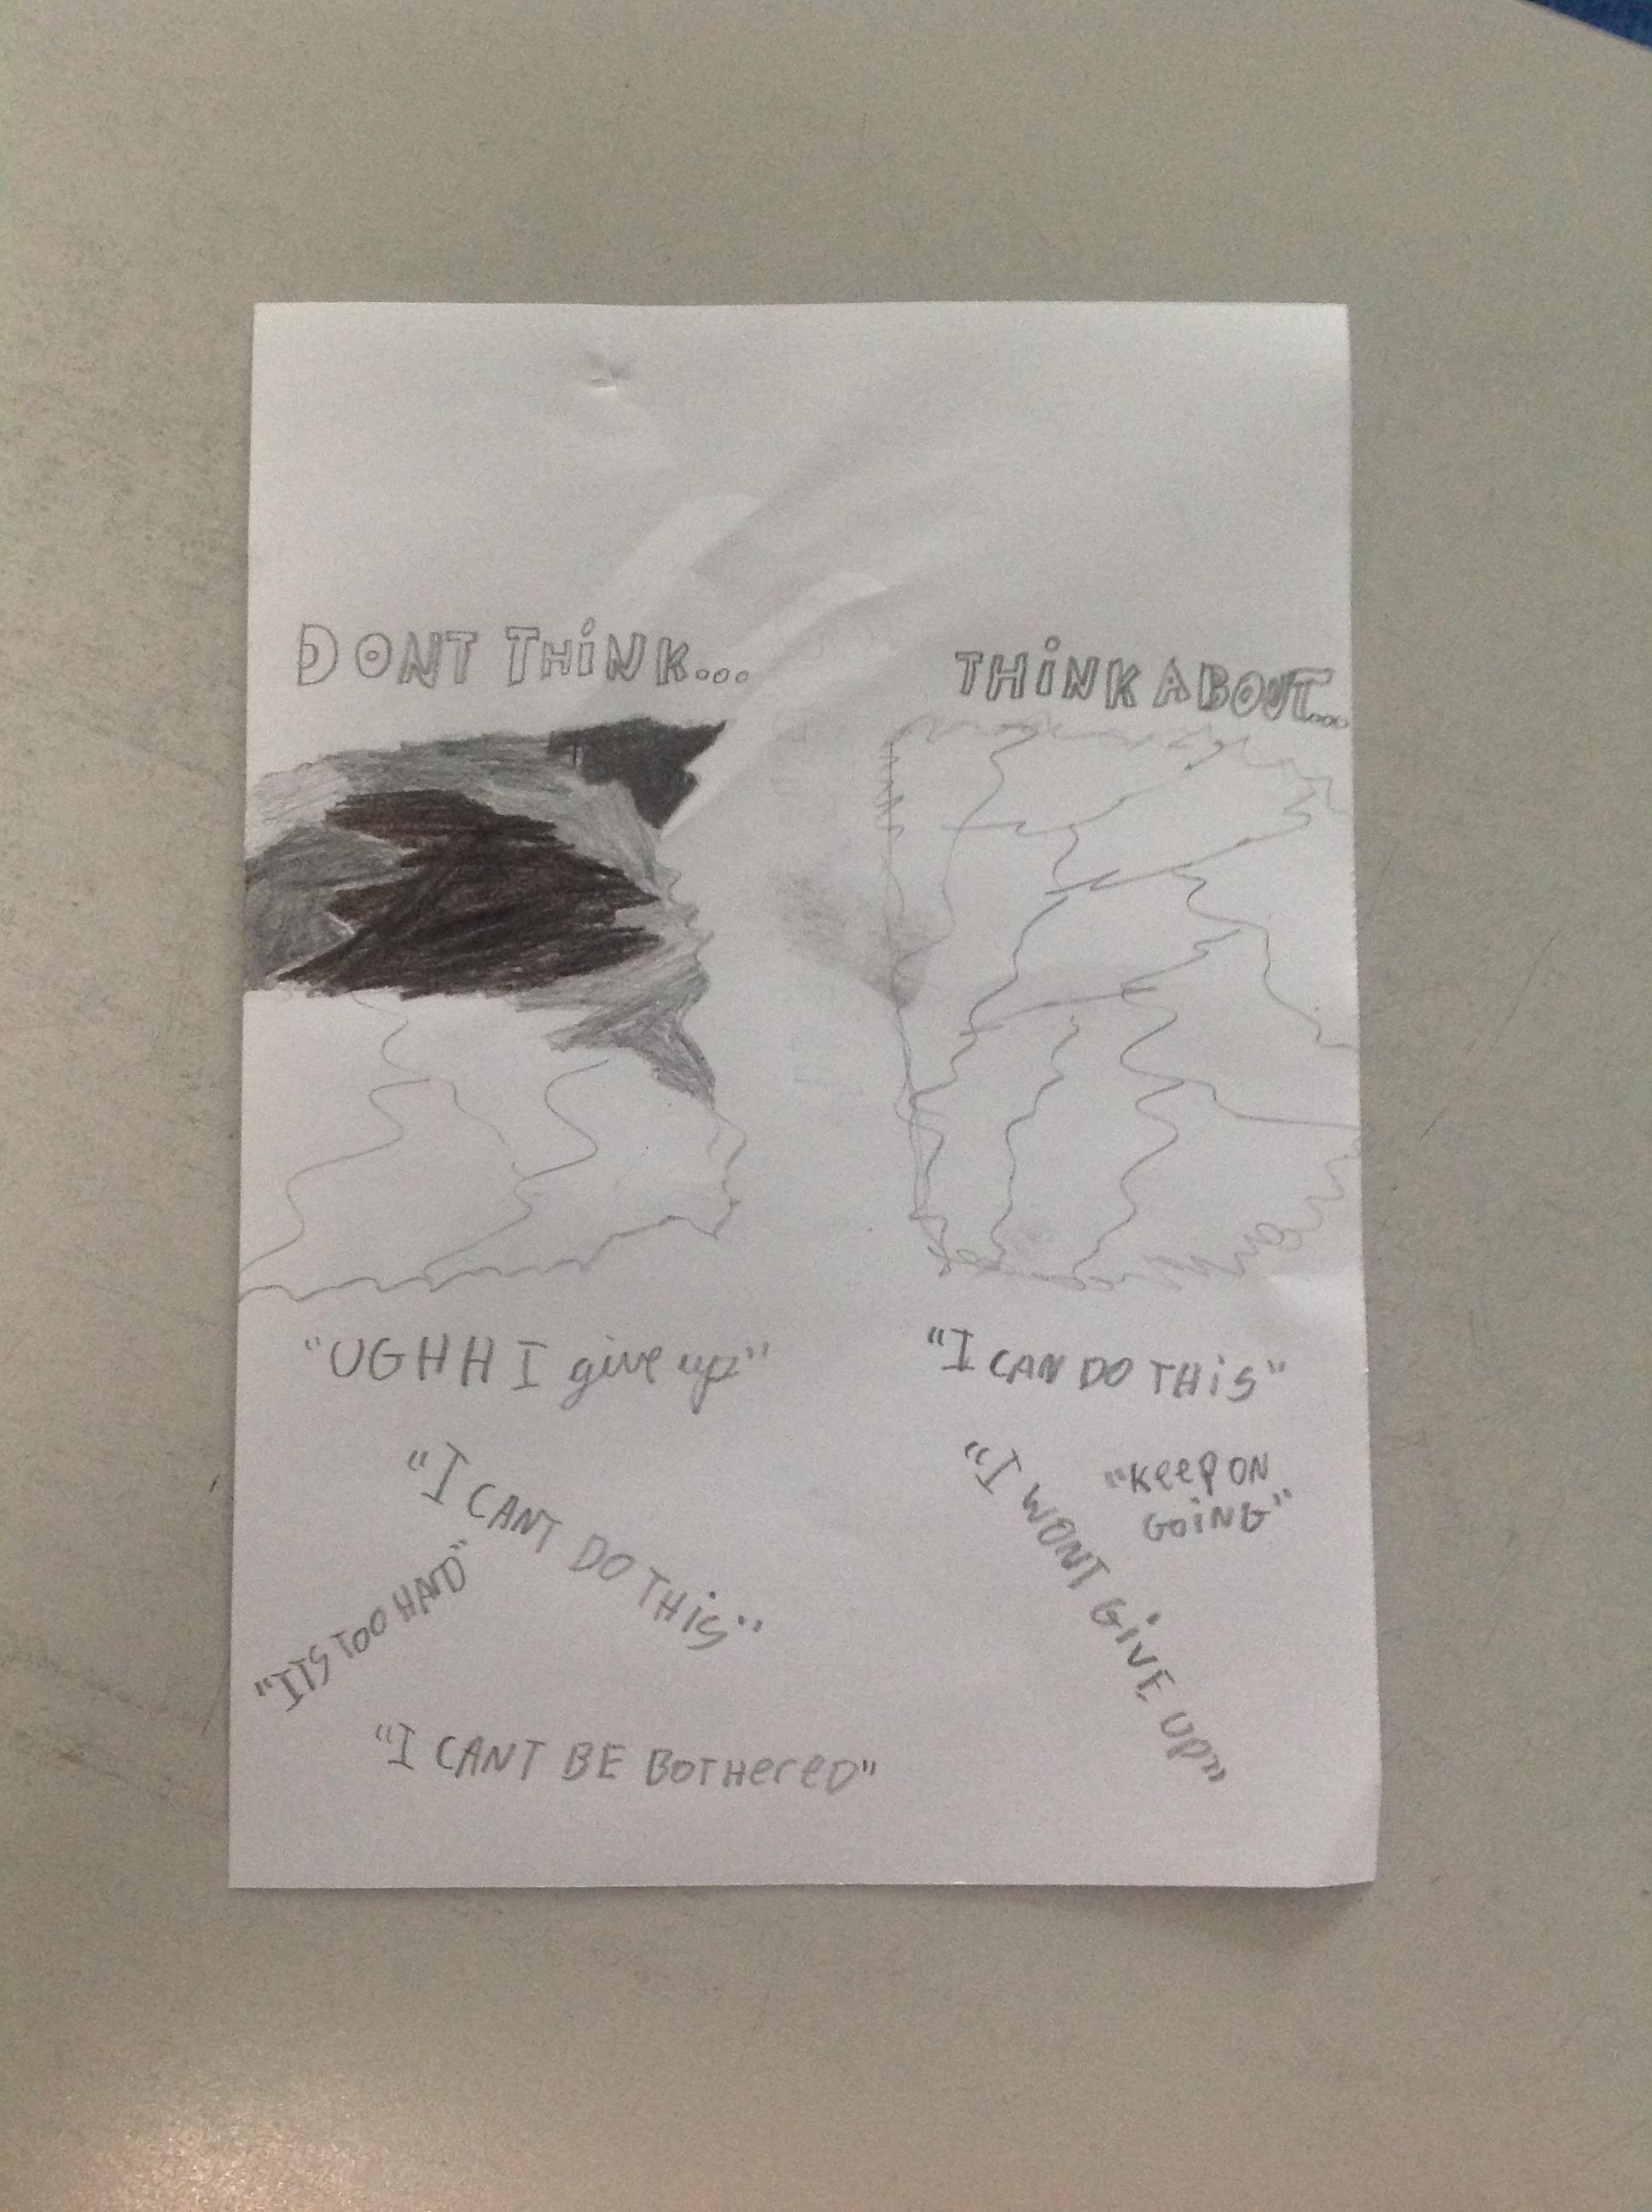 DONT THiNK...
"UGHH I give up"
"I CANT DO THiS"
"ITS TOO HARD"
"I CANT BE BOTHereD"
THiNK ABOUT...
"I CAN DO THiS"
"KeeP ON
GOiNG"
"I WONT GiVE UP"